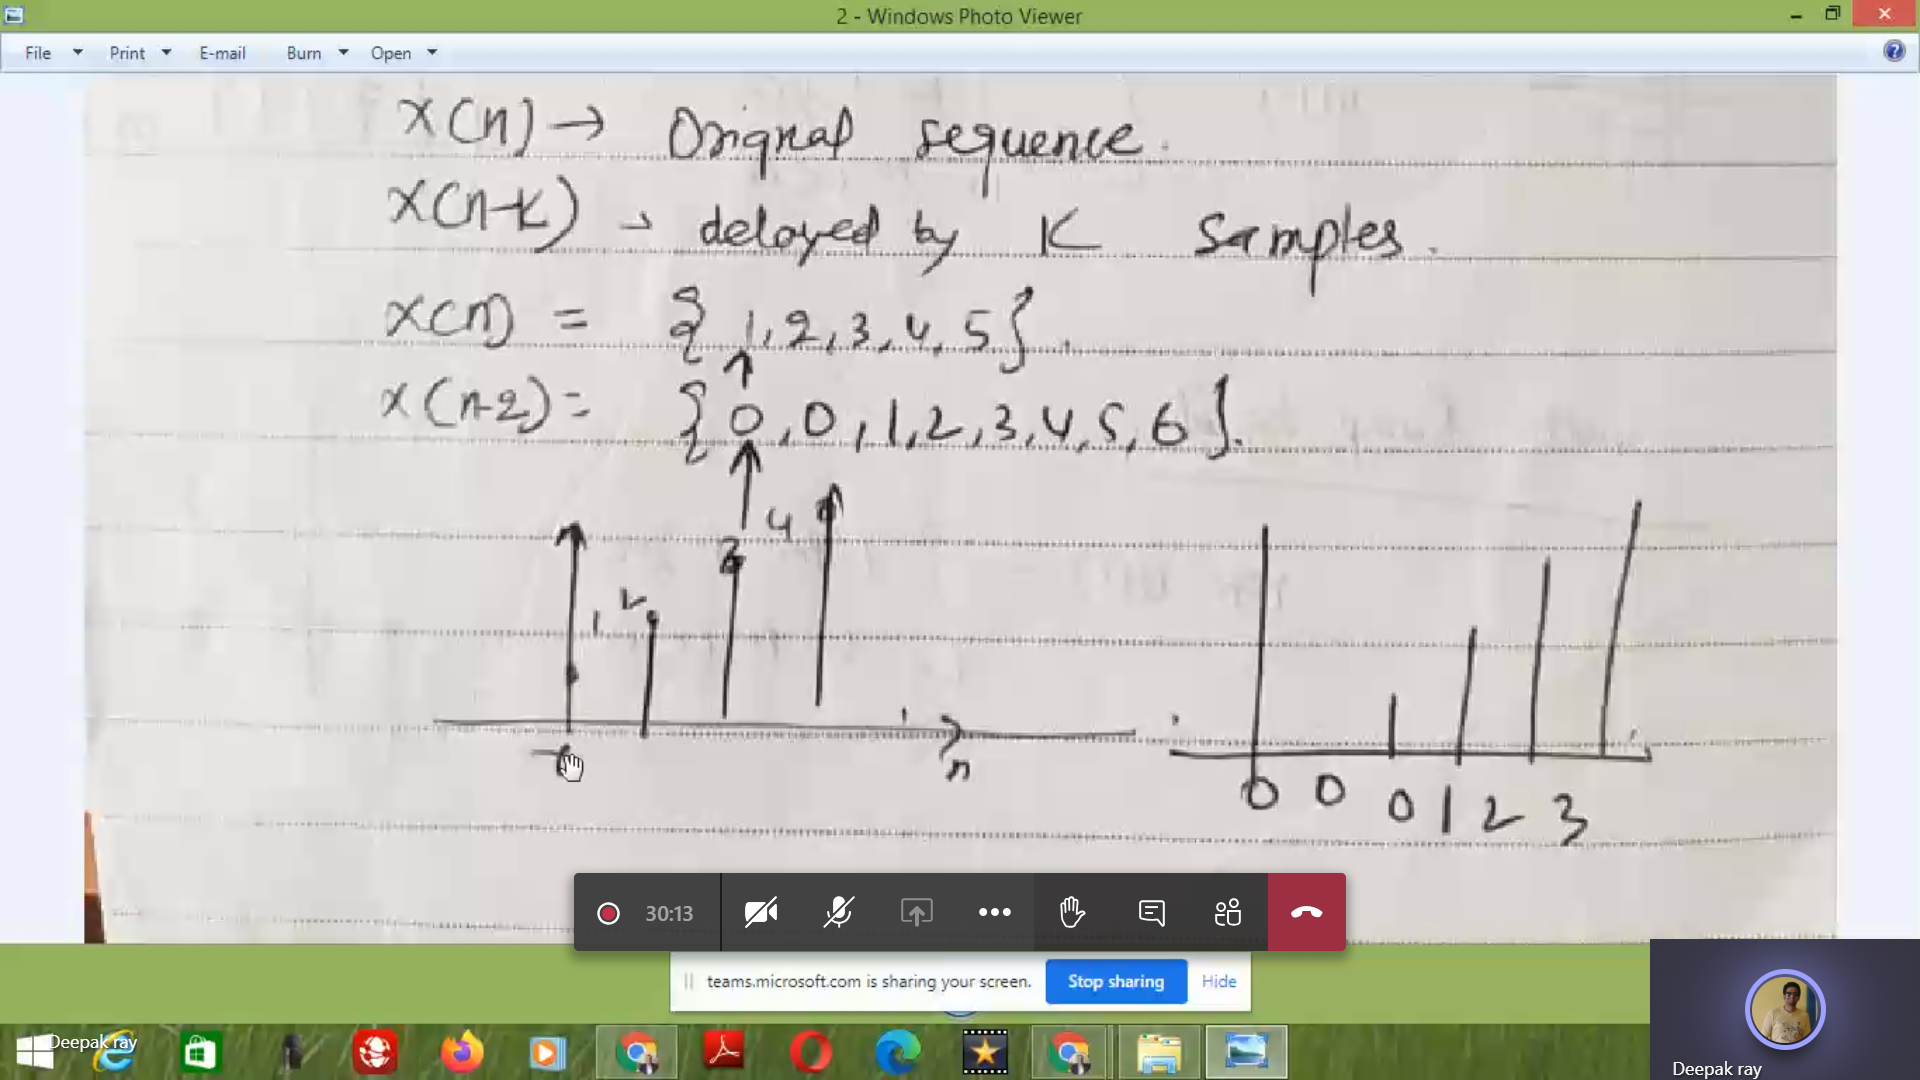 2 - Windows Photo Viewer
File Print E-mail Burn Open
x(n) → Orignal sequence.
x(n-k) → delayed by K Samples.
x(n) = { 1, 2, 3, 4, 5 }.
↑
x(n-2) = { 0, 0, 1, 2, 3, 4, 5, 6 }.
↑
1 2 3 4
n
0 0 0 1 2 3
30:13
teams.microsoft.com is sharing your screen. Stop sharing Hide
Deepak ray
Deepak ray